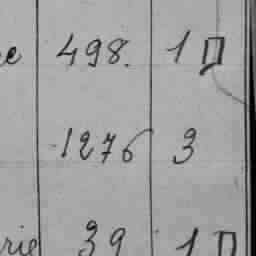 498. 1
1276 3
rie 39 1